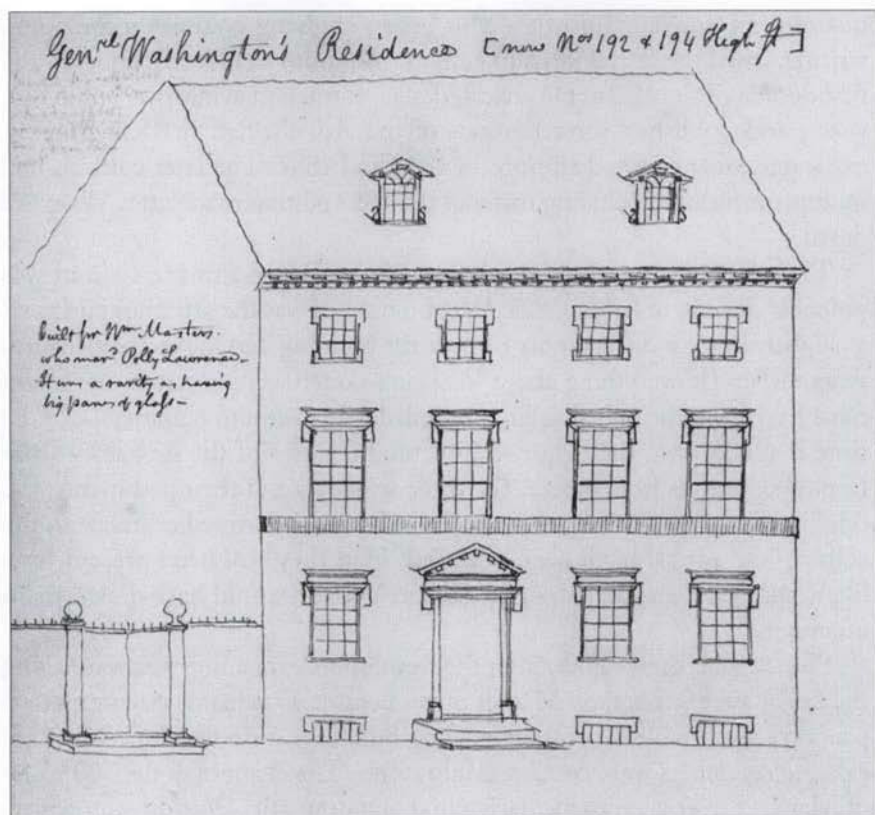 Genʳᵉˡ Washington's Residence [now Nos 192 & 194 High St]
built for Wm Masters.
who marᵈ Polly Lawrence.
It was a rarity as having
big panes of glass—